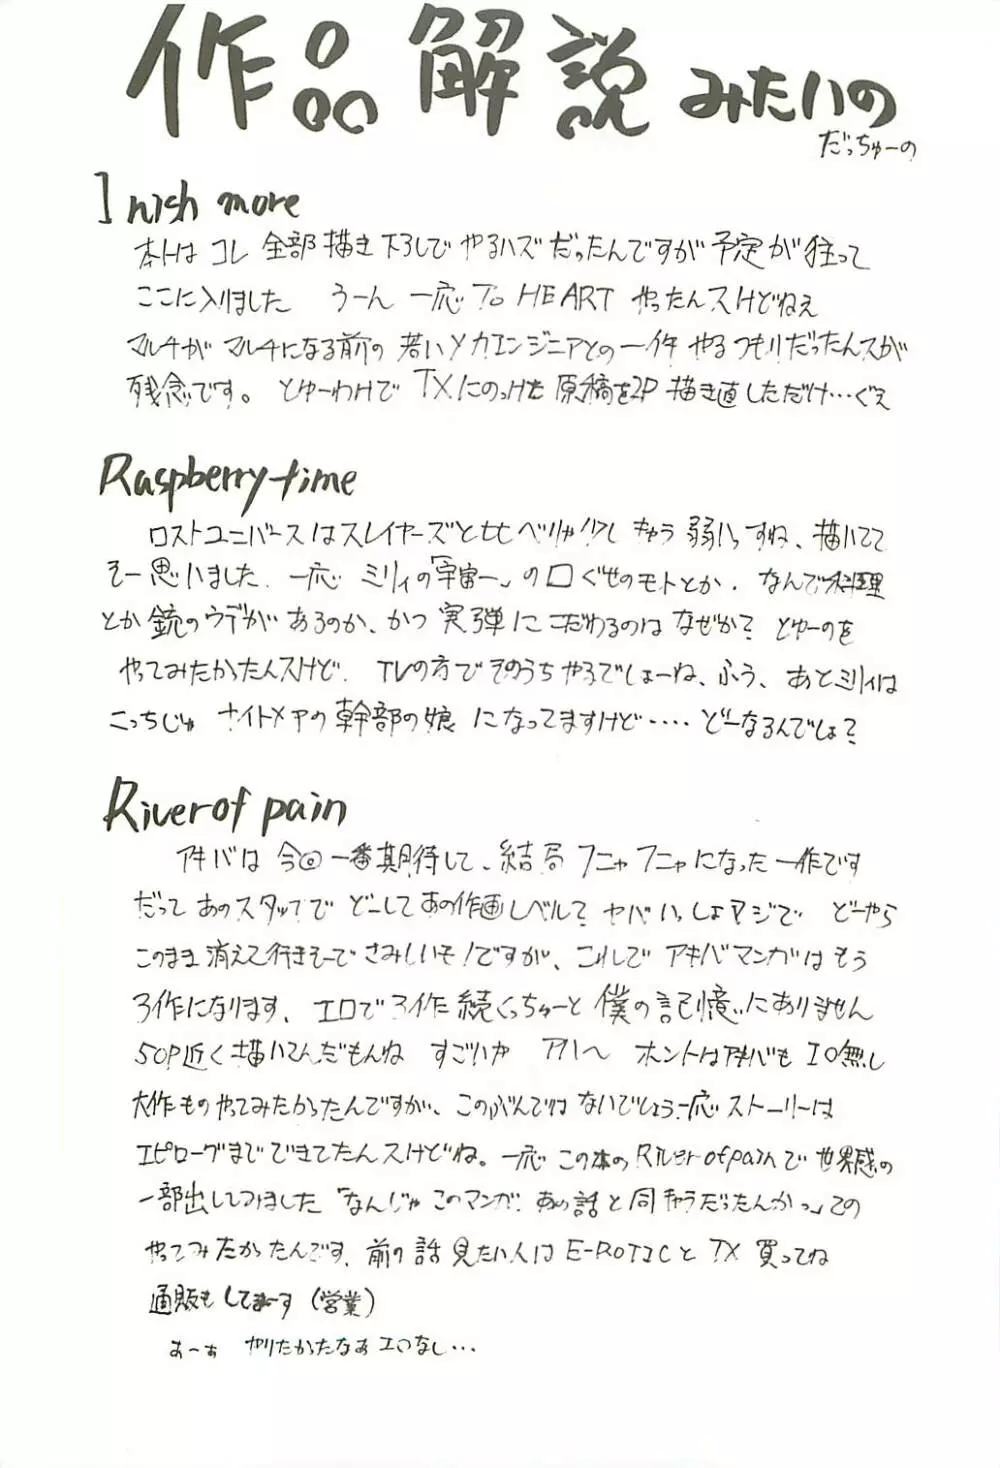 作品解説みたいの
だっちゅーの
I wish more
本トは コレ 全部描き下ろしで やるハズだったんですが予定が狂って
ここに入りました うーん 一応 To HEART やったんスけどねえ
マルチが マルチになる前の 若いメカエンジニアとの一件 やるつもりだったんスが
残念です。 とゆーわけで TXにのっけた 原稿を2P 描き直しただけ…ぐえ
Raspberry time
ロストユニバースはスレイヤーズと比べりゃ少し キャラ弱いっすね、描いてて
そー思いました. 一応 ミリィの「宇宙一」の口ぐせのモトとか. なんで料理
とか銃のウデがあるのか、かつ 実弾にこだわるのは なぜか? とゆーのを
やってみたかったんスけど. TVの方でそのうちやるでしょーね、ふう、あとミリィは
こっちじゃ ナイトメアの幹部の娘 になってますけど‥‥ どーなるんでしょ?
River of pain
アキバは 今回一番期待して、結局 フニャフニャになった一作です
だって あのスタッフで どーしてあの作画レベル? ヤバいっしょマジで どーやら
このまま消えて行きそーで さみしいぞ!ですが、これで アキバマンガはもう
3作になります、エロで3作続くっちゅーと 僕の記憶にありません
50P近く描いてんだもんね すごいか アハヘ ホントはアキバも エロ無し
大作ものやってみたかったんですが、このぶんではないでしょう一応ストーリーは
エピローグまで できてたんスけどね。一応 この本のRiver of painで 世界感の
一部出してみました「なんじゃ このマンガ. あの話と同キャラだったんかっ」ての
やってみたかったんです. 前の話見たい人は E-ROTIC と TX 買ってね
通販も してまーす (営業)
あーあ やりたかったなあ エロなし…